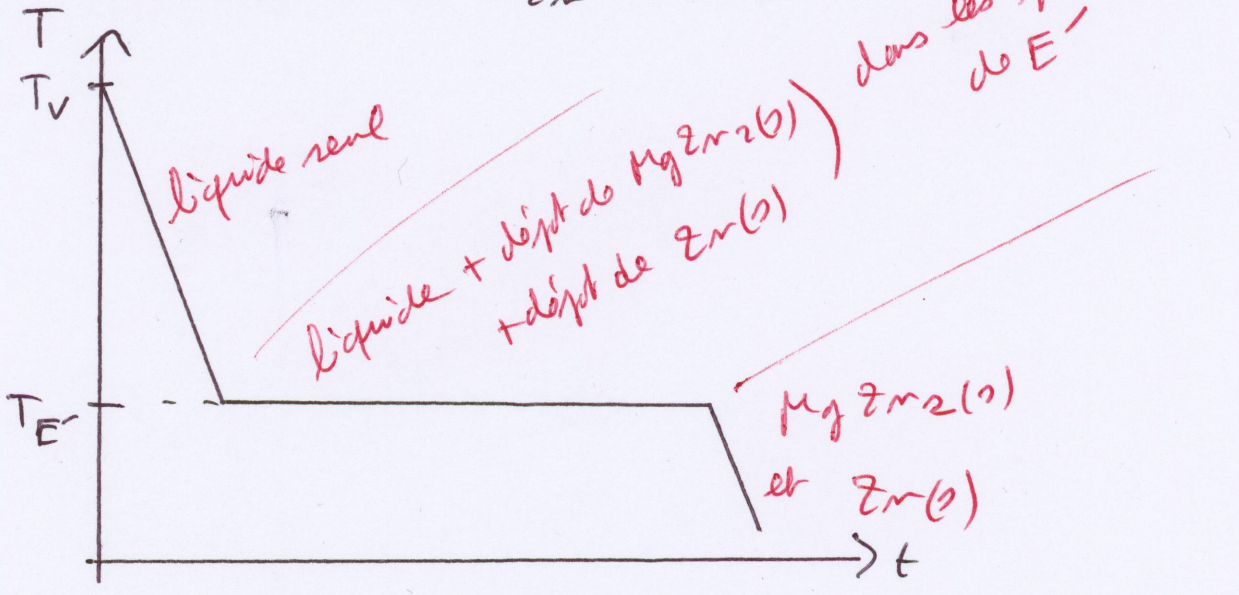 T
T_V
liquide seul
liquide + dépôt de MgZn2(s)
+ dépôt de Zn(s)
dans les
de E'
T_E'
MgZn2(s)
et Zn(s)
t